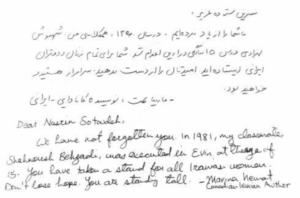 نسرین ستوده عزیز
ما شما را از یاد نبرده‌ایم. در سال ۱۳۶۰، همکلاسی من شهنوش
بهزادی در سن ۱۵ سالگی در اوین اعدام شد. شما برای تمام زنان و دختران
ایرانی ایستاده‌اید. امیدتان را از دست ندهید. سرافراز هستید و
خواهید بود.
- مارینا نمت، نویسنده کانادایی-ایرانی
Dear Nasrin Sotoudeh,
We have not forgotten you. In 1981, my classmate
Shahnoush Behzadi, was executed in Evin, at the age of
15. You have taken a stand for all Iranian women.
Don't lose hope. You are standing tall. - Marina Nemat
Canadian-Iranian Author